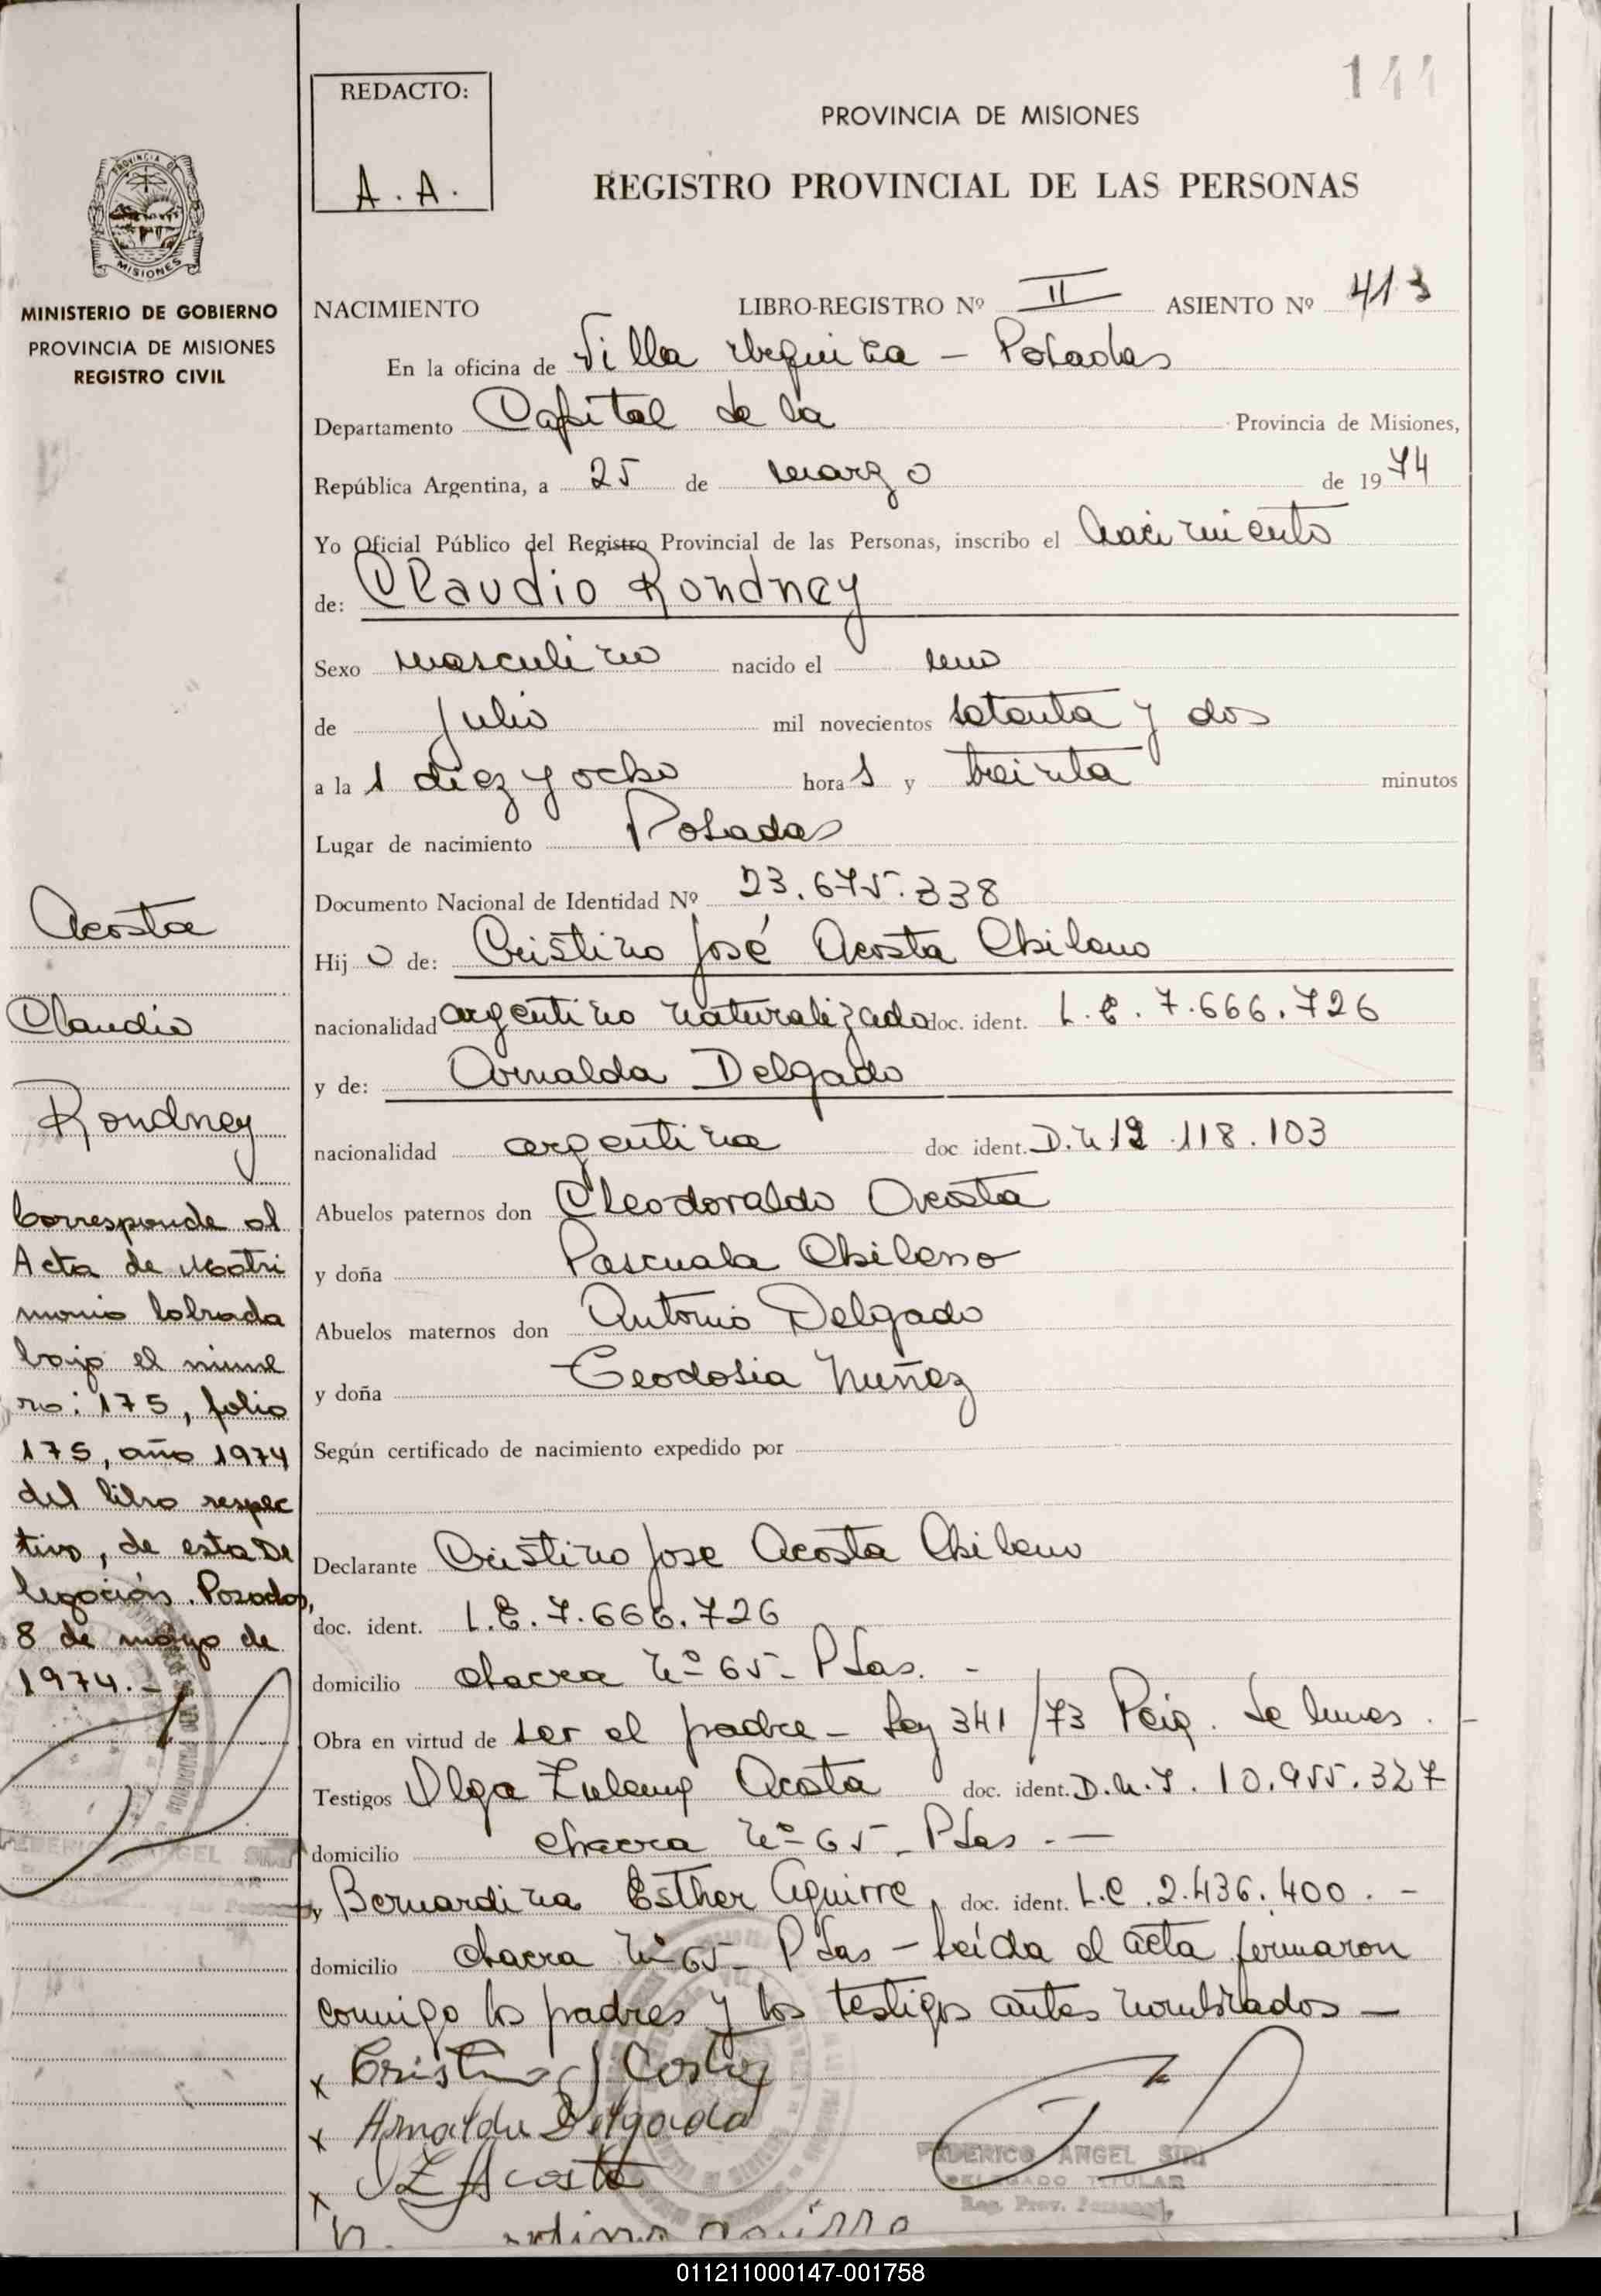 144
REDACTO:
A. A.
PROVINCIA DE MISIONES
REGISTRO PROVINCIAL DE LAS PERSONAS
PROVINCIA DE
MISIONES
MINISTERIO DE GOBIERNO
PROVINCIA DE MISIONES
REGISTRO CIVIL
NACIMIENTO LIBRO-REGISTRO Nº II ASIENTO Nº 413
En la oficina de Villa Urquiza - Posadas
Departamento Capital de la Provincia de Misiones,
República Argentina, a 25 de marzo de 1974
Yo Oficial Público del Registro Provincial de las Personas, inscribo el nacimiento
de: Claudio Rondney
Sexo masculino nacido el uno
de julio mil novecientos setenta y dos
a la s diez y ocho hora s y treinta minutos
Lugar de nacimiento Posadas
Documento Nacional de Identidad Nº 23.675.338
Hij o de: Cristino José Acosta Chileno
nacionalidad argentino naturalizado doc. ident. L.E. 7.666.726
y de: Arnalda Delgado
nacionalidad argentina doc ident. D.N 12.118.103
Abuelos paternos don Cleodoraldo Acosta
y doña Pascuala Chileno
Abuelos maternos don Antonio Delgado
y doña Teodosia Nuñez
Según certificado de nacimiento expedido por
Declarante Cristino Jose Acosta Chileno
doc. ident. L.E. 7.666.726
domicilio chacra nº 65- Pdas. -
Obra en virtud de ser el padre - Ley 341/73
Testigos Olga Acosta doc. ident. D.N.I. 10.955.327
domicilio chacra nº 65- Pdas. -
y Bernardina Esther Aguirre, doc. ident. L.C. 2.436.400. -
domicilio chacra nº 65- Pdas - Leída el acta firmaron
conmigo los padres y los testigos antes nombrados -
x Cristino J Acosta
x Arnalda Delgado
x O Z Acosta
aguirre
FEDERICO ANGEL SIRI
DELEGADO TITULAR
Reg. Prov. Personas
Acosta
Claudio
Rondney
Corresponde al
Acta de Matri
monio labrada
bajo el núme
ro: 175, folio
175, año 1974
del libro respec
tivo, de esta De
legación. Posadas,
8 de mayo de
1974.-
FEDERICO ANGEL SIRI
011211000147-001758